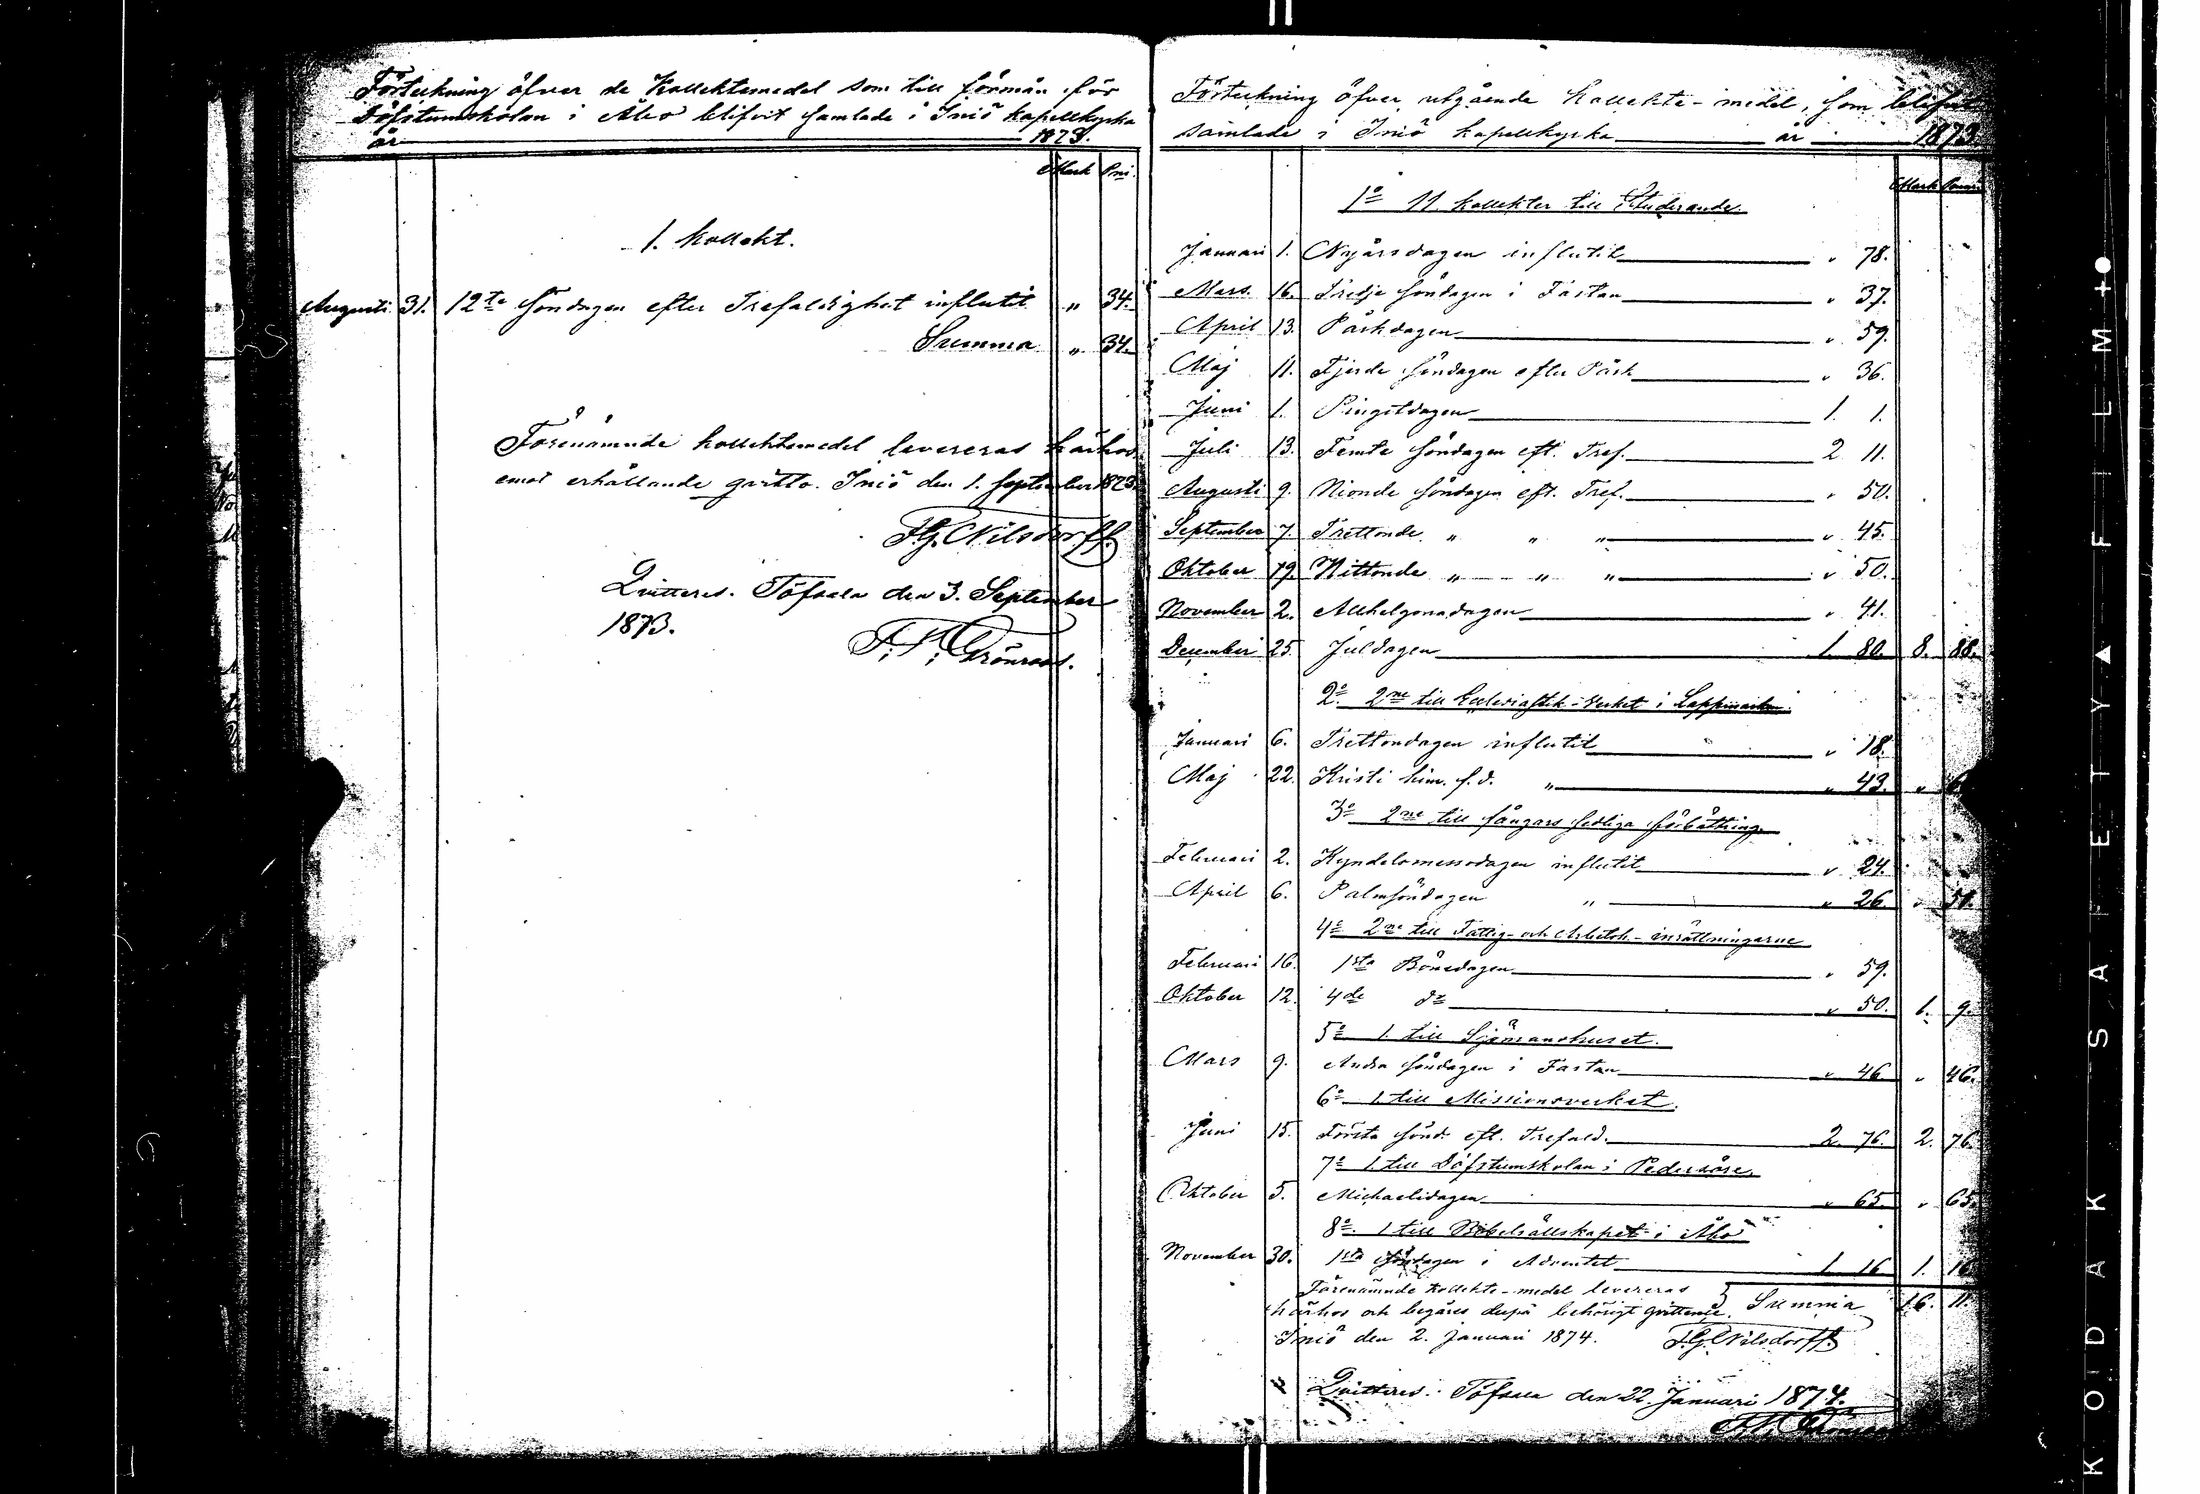 Förteckning öfver de Kollektsmedel som till förmån för
Döfstumskolan i Åbo blifvit samlade i Iniö kapellkyrka
år 1873.
Mark Pni.
1. Kollekt.
Augusti 31. 12te Söndagen efter Trefaldighet influtit " 34.
Summa " 34.
Förenämnde kollektsmedel levereras härhos
emot erhållande qvitto. Iniö den 1. September 1873.
F.G. Nilsdorff.
Qvitteras. Töfsala den 3. September
1873.
F. W. Grönroos.
Förteckning öfver utgående Kollekte-medel, som blifvit
samlade i Iniö kapellkyrka år 1873.
Mark Penni
1o 11 kollekter till Studerande.
Januari 1. Nyårsdagen influtit " 78.
Mars 16. Tredje Söndagen i Fastan " 37.
April 13. Påskdagen " 59.
Maj 11. Fjerde Söndagen efter Påsk " 36.
Juni 1. Pingstdagen 1. 1.
Juli 13. Femte Söndagen eft. Tref. 2 11.
Augusti 9. Nionde Söndagen eft. Tref. " 50.
September 7. Trettonde " " " " 45.
Oktober 19. Nittonde " " " " 50.
November 2. Allhelgonadagen " 41.
December 25. Juldagen 1. 80. 8. 88.
2o 2ne till Ecclesiastik-Verket i Lappmarken.
Januari 6. Trettondagen influtit " 18.
Maj 22. Kristi him. f. d. " " 43. "
3o 2ne till fångars sedliga förbättring
Februari 2. Kyndelsmessodagen influtit " 24.
April 6. Palmsöndagen " " 26 "
4o 2ne till Fattig- och Arbets-inrättningarne
Februari 16. 1sta Bönedagen " 59.
Oktober 12. 4de do " 50. 1. 9.
5o 1. till Sjömanshuset.
Mars 9. Andra Söndagen i Fastan " 46 " 46.
6o 1 till Missionsverket.
Juni 15. Första Sönd. eft. Trefald. 2. 76. 2. 76.
7o 1 till Döfstumskolan i Pedersöre.
Oktober 5. Michaelidagen " 65. " 65.
8o 1 till Bibelsällskapet i Åbo
November 30. 1sta Söndagen i Adventet 1 16 1. 16
Förenämnde Kollekte-medel levereras
härhos och begäres derpå behörigt qvittence. Summa 16. 11.
Iniö den 2. Januari 1874. F.G. Nilsdorff.
Qvitteras. Töfsala den 22. Januari 1874.
F. W. Grönroos
KODAK SAFETY ▲ FILM